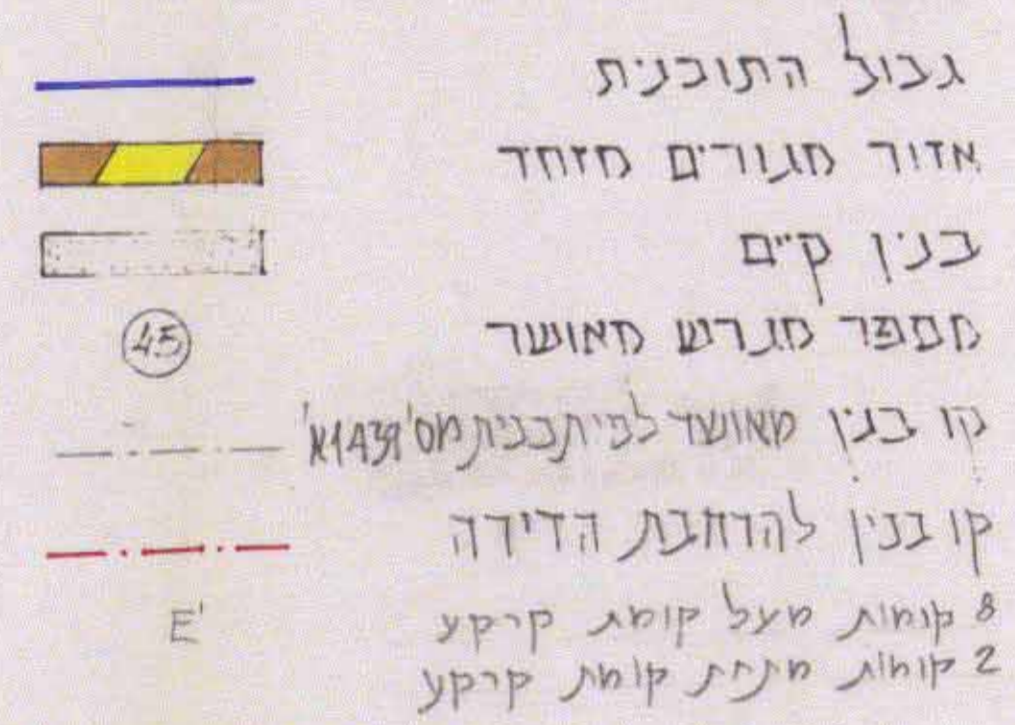 גבול התוכנית
אזור מגורים מיוחד
בנין קיים
מספר מגרש מאושר
45
קו בנין מאושר לפי תכנית מס' 1439א'
קו בנין להרחבת הדירה
E'
8 קומות מעל קומת קרקע
2 קומות מתחת קומת קרקע